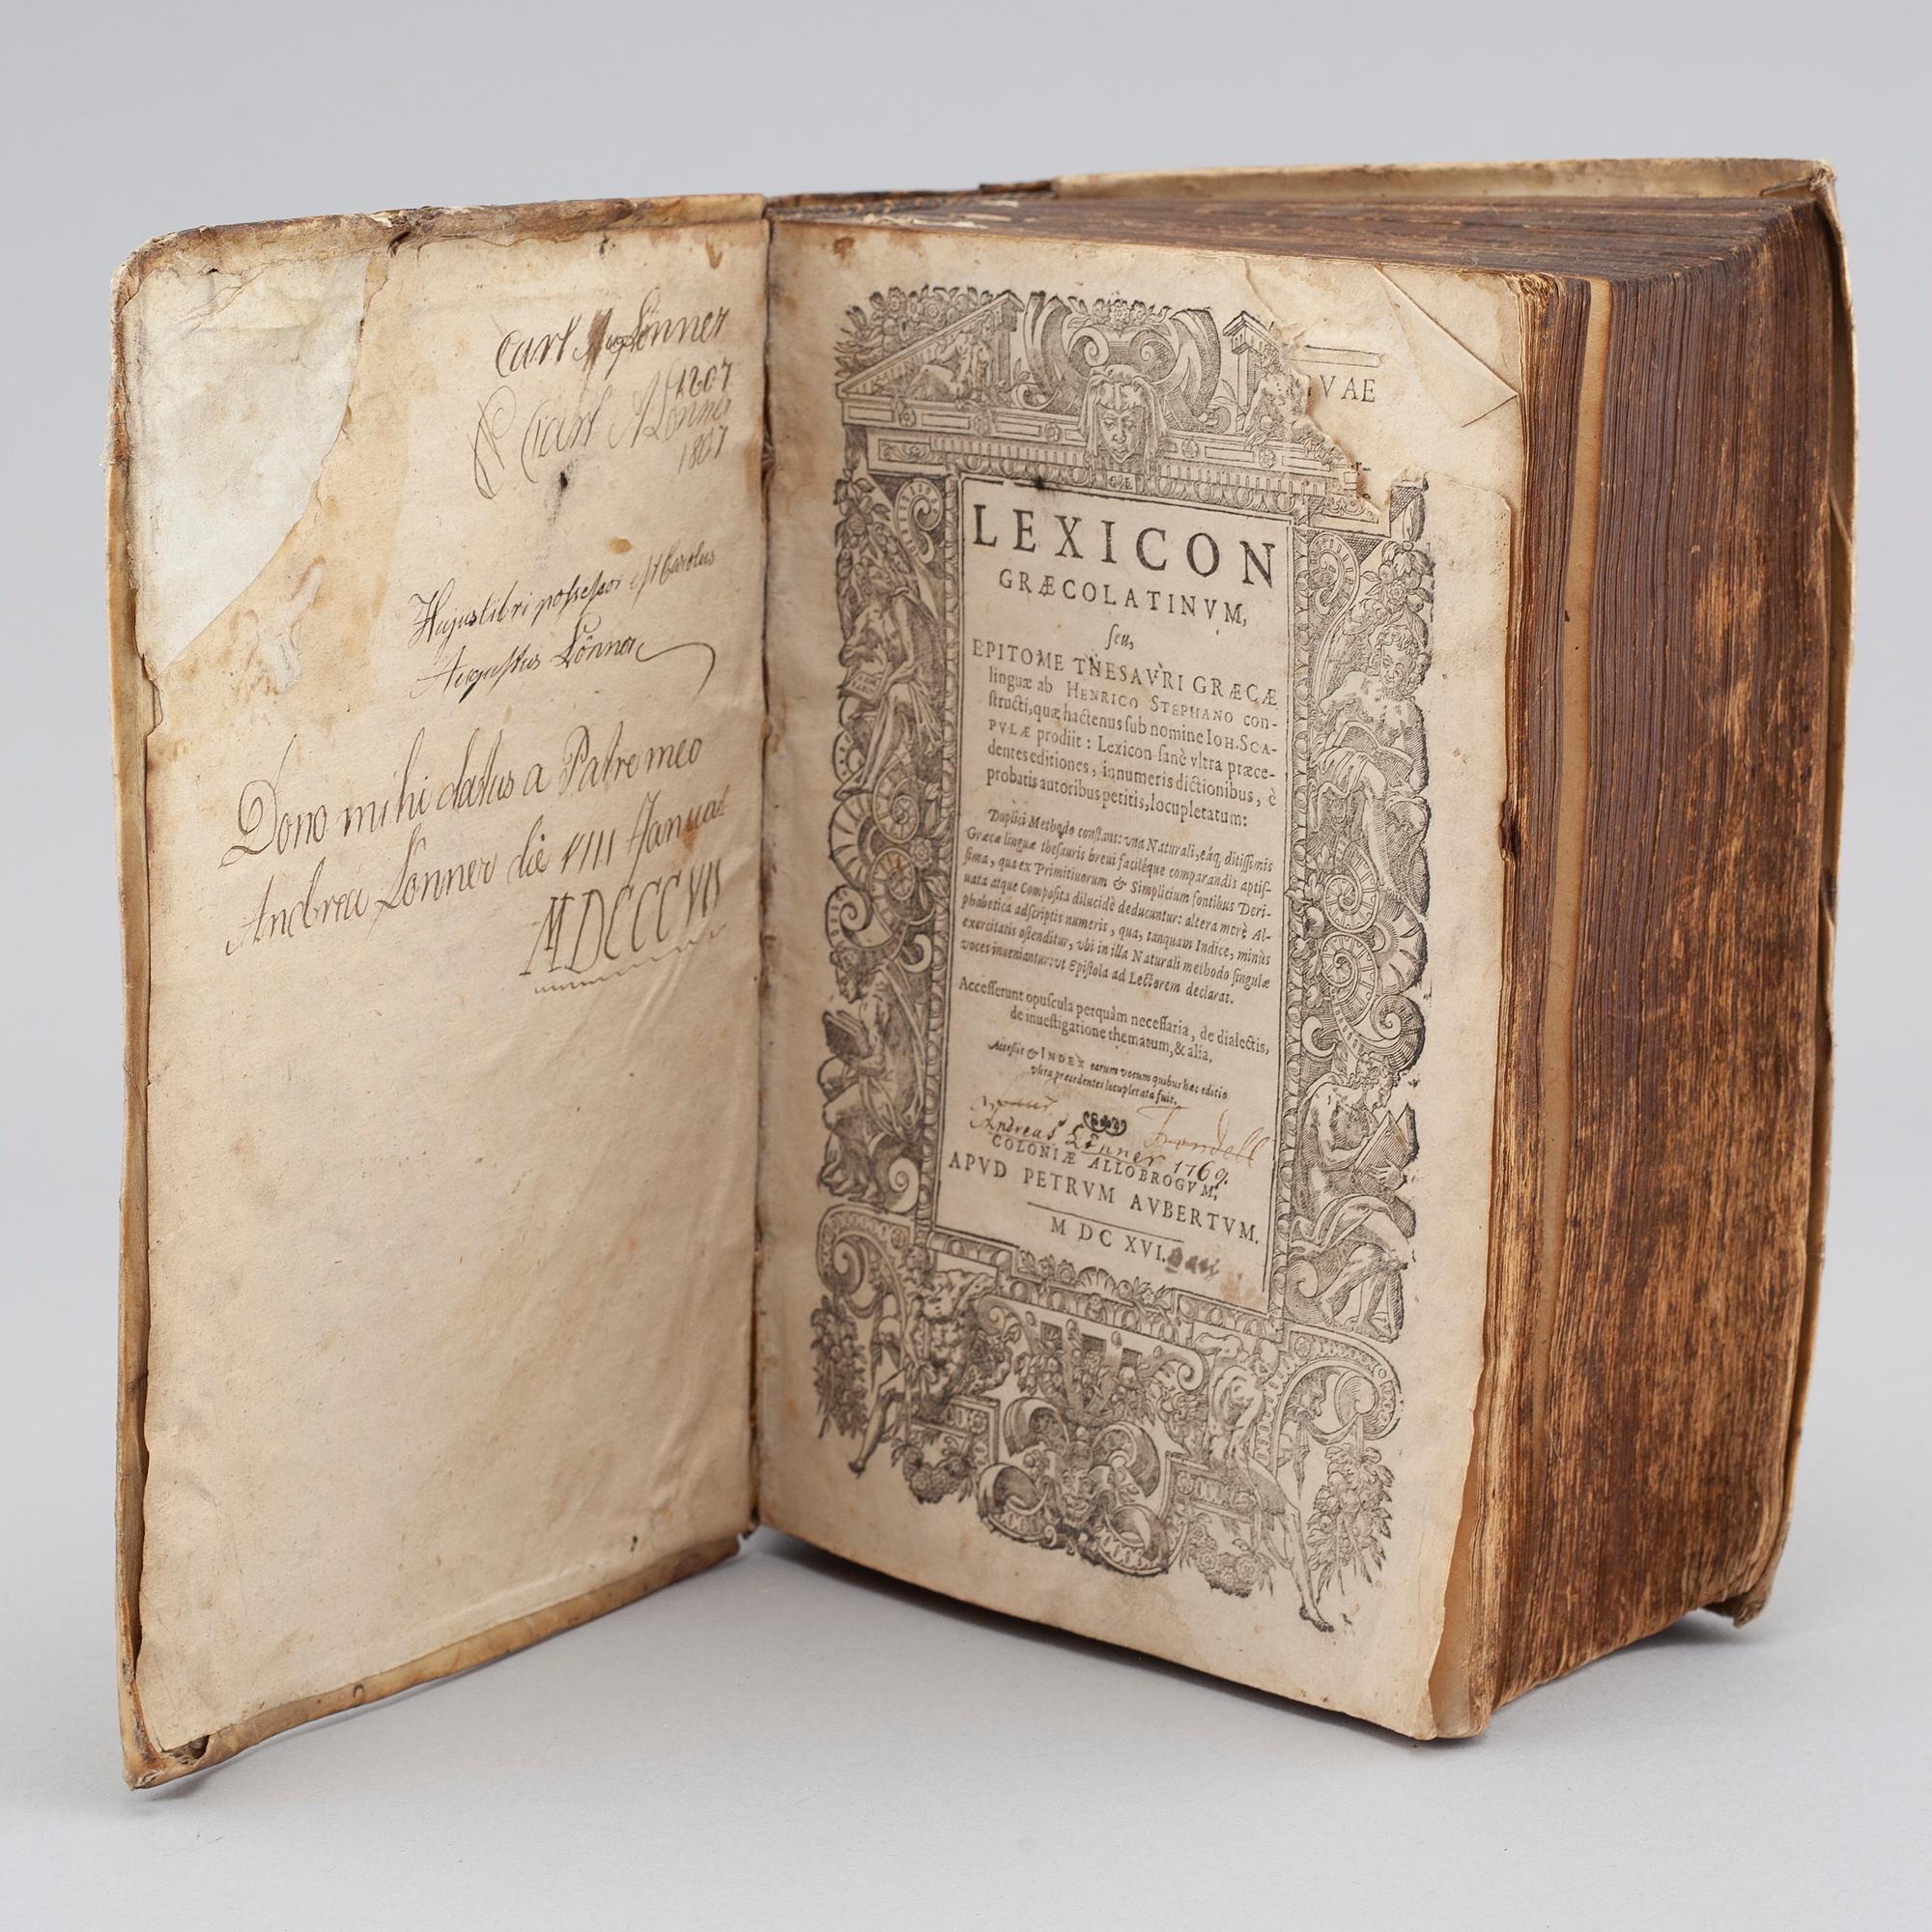 Carl Aug Lönner
1807
Carl A Lönner
1807
Hujus libri possessor est Carolus
Augustus Lönner
Dono mihi datus a Patre meo
Andrea Lönner die VIII Januari
MDCCCVII
VAE
LEXICON
GRÆCOLATINVM,
ſeu,
EPITOME THESAVRI GRÆCÆ
linguæ ab HENRICO STEPHANO con-
ſtructi, quæ hactenus ſub nomine IOH. SCA-
PVLÆ prodiit: Lexicon ſanè vltra præce-
dentes editiones, innumeris dictionibus, è
probatis autoribus petitis, locupletatum:
Duplici Methodo conſtans: vna Naturali, eáq, ditiſſimis
Græcæ linguæ theſauris breui facilèque comparandis aptiſ-
ſima, qua ex Primitiuorum & Simplicium fontibus Deri-
uata atque Compoſita dilucidè deducuntur: altera merè Al-
phabetica adſcriptis numeris, qua, tanquam Indice, minùs
exercitatis oſtenditur, vbi in illa Naturali methodo ſingulæ
voces inueniantur: vt Epiſtola ad Lectorem declarat.
Acceſſerunt opuſcula perquàm neceſſaria, de dialectis,
de inueſtigatione thematum, & alia.
Acceſſit & INDEX earum vocum quibus hæc editio
vltra præcedentes locupletata fuit.
Frondell
Andreas Lönner 1769.
COLONIÆ ALLOBROGVM,
APVD PETRVM AVBERTVM.
M DC XVI.